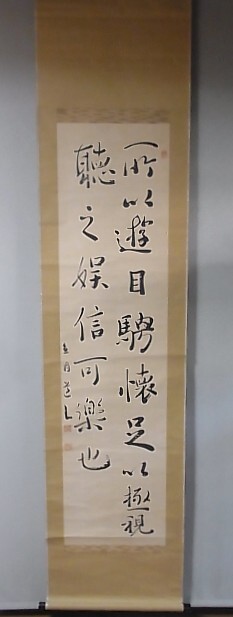 所以遊目騁懐足以極視
聴之娯信可樂也